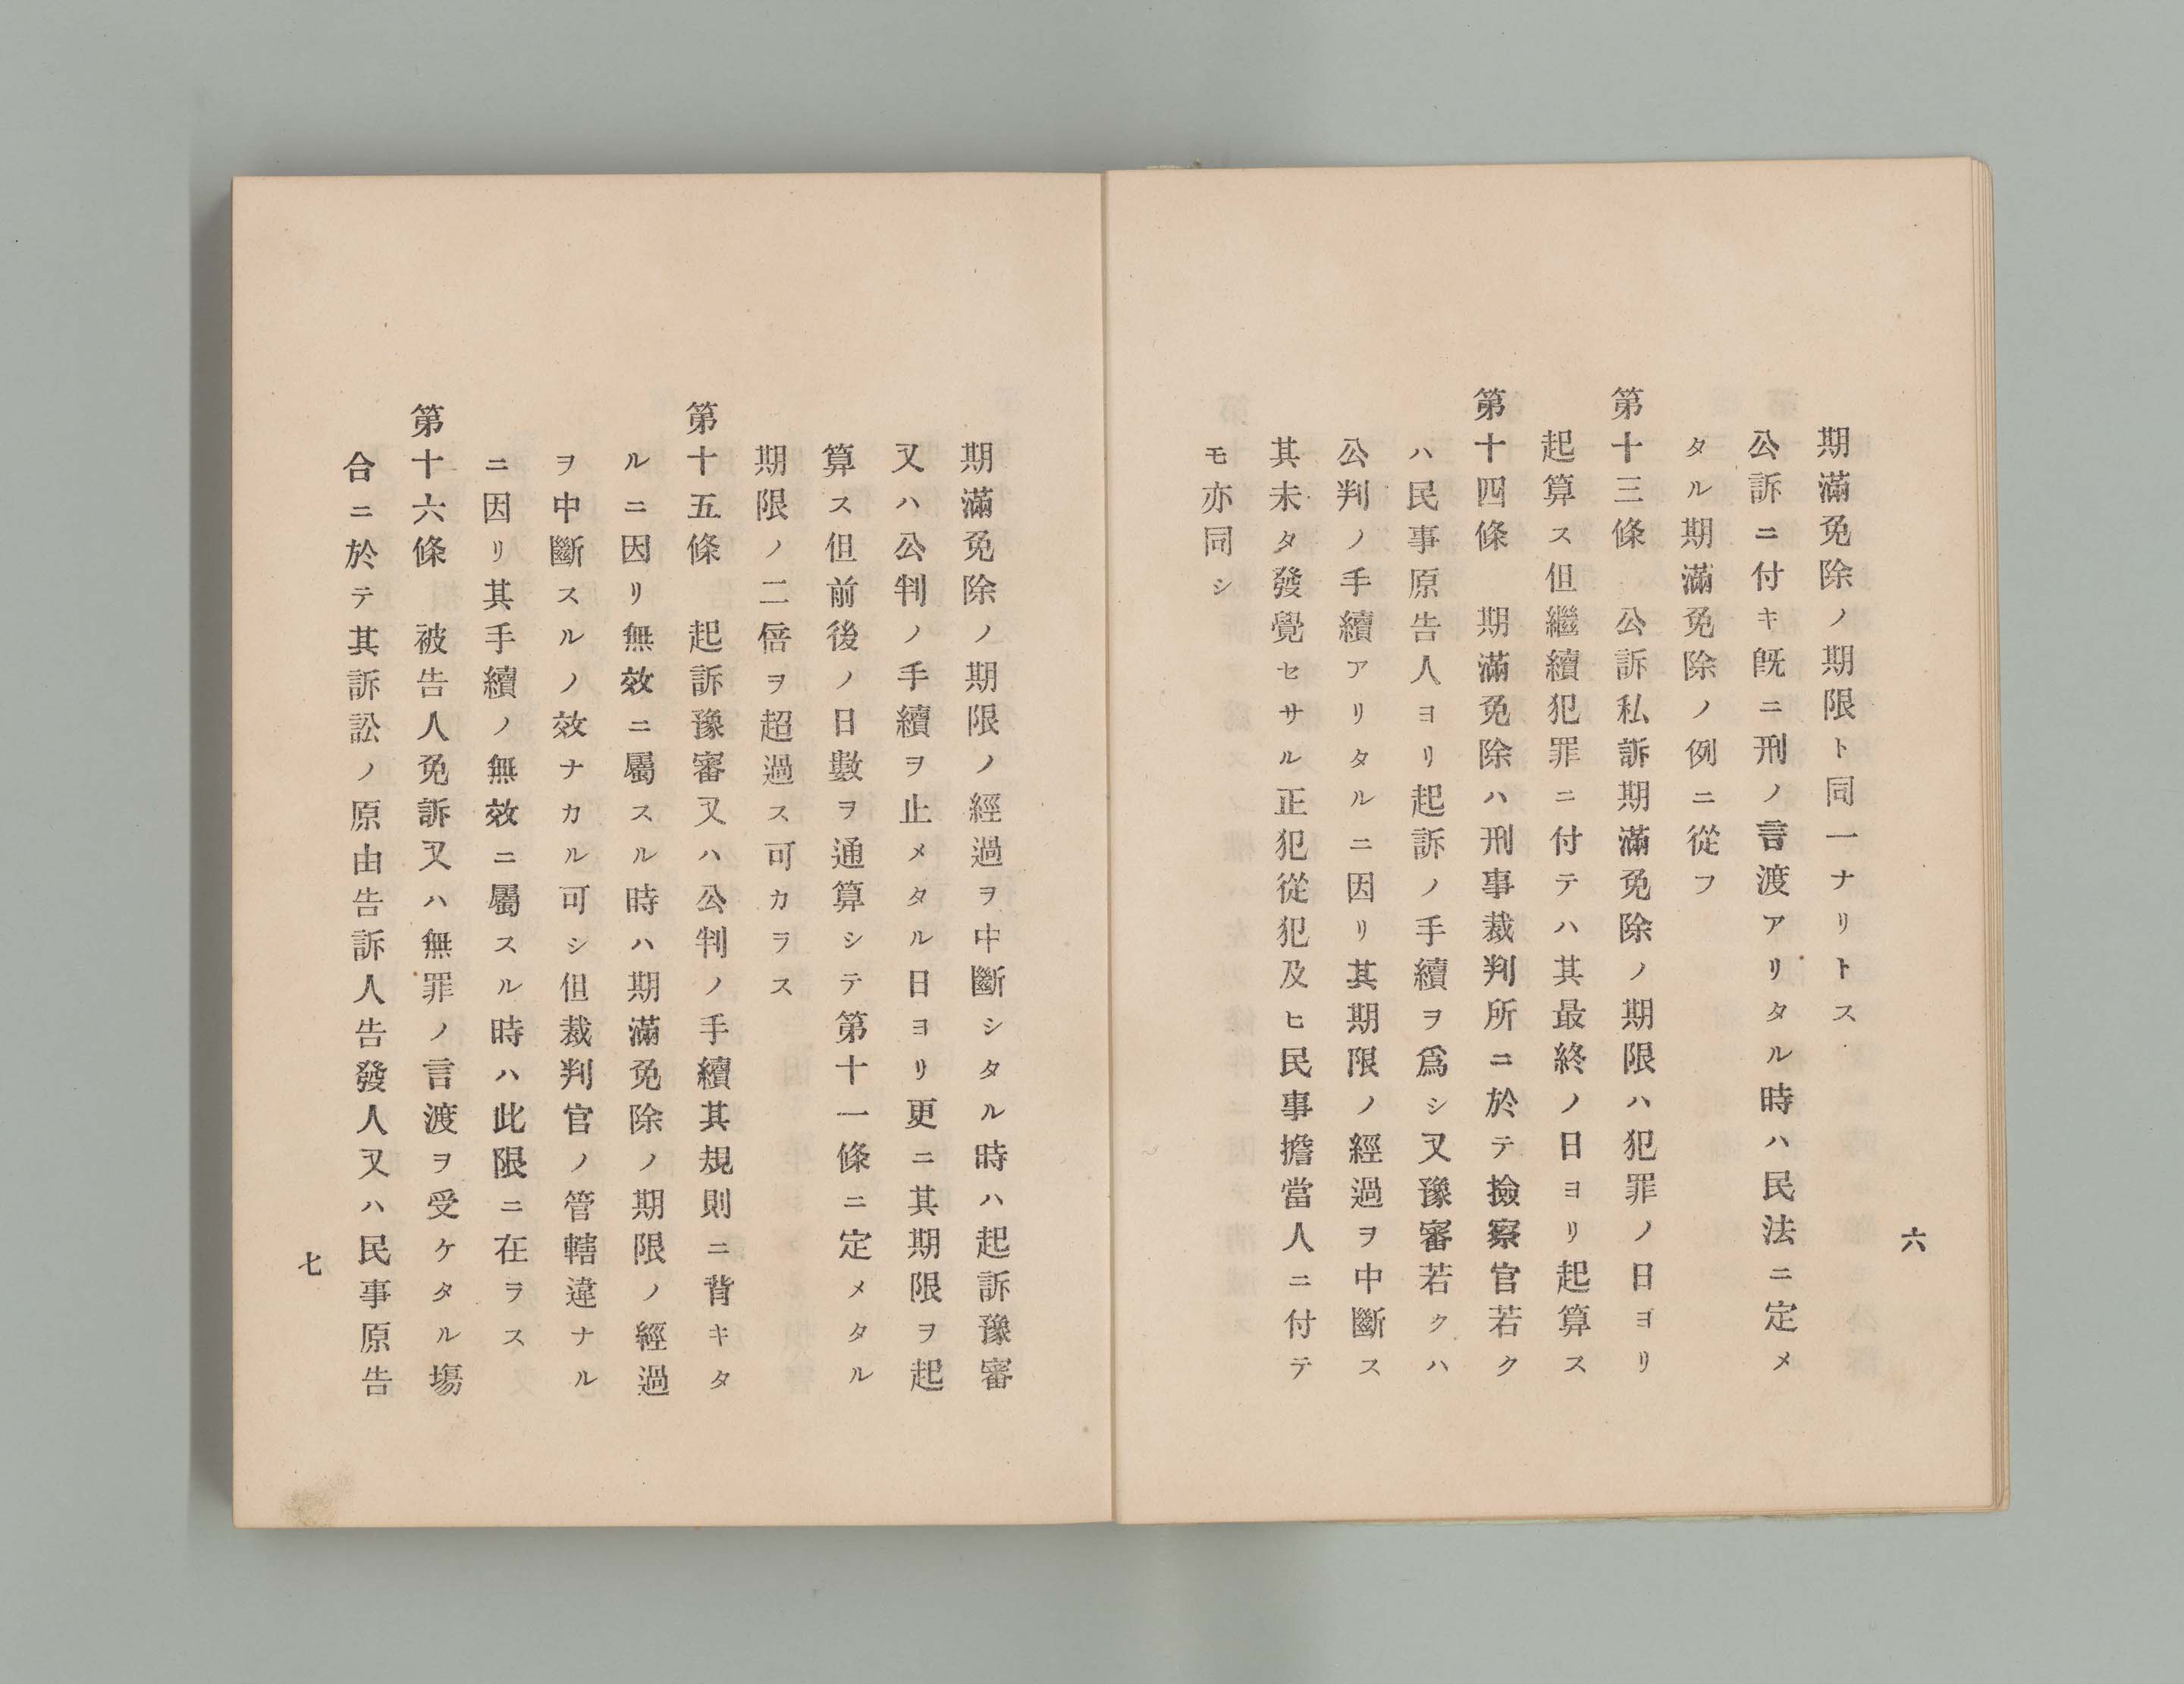 期滿免除ノ期限ト同一ナリトス
公訴ニ付キ既ニ刑ノ言渡アリタル時ハ民法ニ定メ
タル期滿免除ノ例ニ從フ
第十三條 公訴私訴期滿免除ノ期限ハ犯罪ノ日ヨリ
起算ス但繼續犯罪ニ付テハ其最終ノ日ヨリ起算ス
第十四條 期滿免除ハ刑事裁判所ニ於テ撿察官若ク
ハ民事原告人ヨリ起訴ノ手續ヲ爲シ又豫審若クハ
公判ノ手續アリタルニ因リ其期限ノ經過ヲ中斷ス
其未タ發覺セサル正犯從犯及ヒ民事擔當人ニ付テ
モ亦同シ
六
期滿免除ノ期限ノ經過ヲ中斷シタル時ハ起訴豫審
又ハ公判ノ手續ヲ止メタル日ヨリ更ニ其期限ヲ起
算ス但前後ノ日數ヲ通算シテ第十一條ニ定メタル
期限ノ二倍ヲ超過ス可カラス
第十五條 起訴豫審又ハ公判ノ手續其規則ニ背キタ
ルニ因リ無效ニ屬スル時ハ期滿免除ノ期限ノ經過
ヲ中斷スルノ效ナカル可シ但裁判官ノ管轄違ナル
ニ因リ其手續ノ無效ニ屬スル時ハ此限ニ在ラス
第十六條 被告人免訴又ハ無罪ノ言渡ヲ受ケタル塲
合ニ於テ其訴訟ノ原由告訴人告發人又ハ民事原告
七